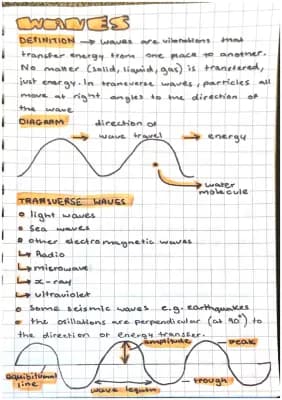 WAVES
DEFINITION → waves are vibrations that
transfer energy from one place to another.
No matter (solid, liquid, gas) is transfered,
just energy. In transverse waves, particles all
move at right angles to the direction of
the wave
DIAGRAM
direction of
wave travel
→ energy
water
molecule
TRANSVERSE WAVES
light waves
sea waves
other electromagnetic waves
↳ Radio
↳ microwave
↳ x-ray
↳ ultraviolet
some seismic waves e.g. earthquakes
the osillations are perpendicular (at 90°) to
the direction of energy transfer.
amplitude
peak
equibitional
line
wave length
trough